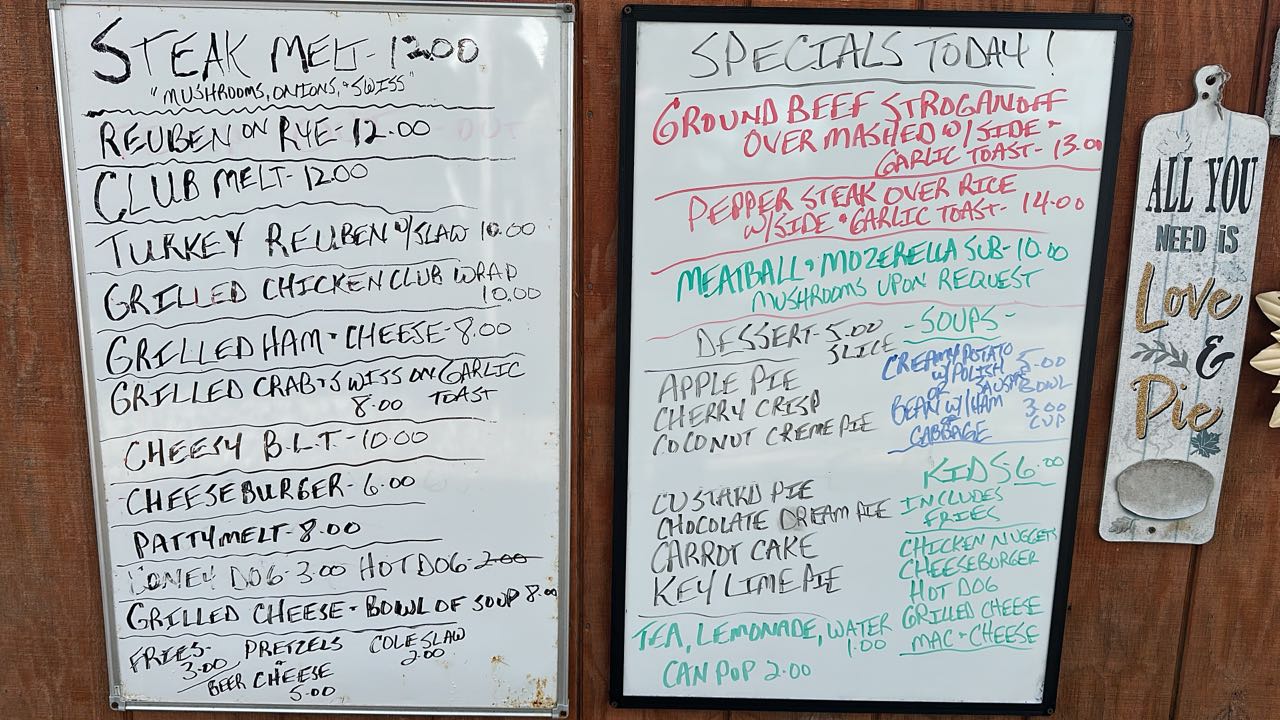 STEAK MELT- 12.00
"MUSHROOMS, ONIONS, & SWISS"
REUBEN ON RYE- 12.00
CLUB MELT- 12.00
TURKEY REUBEN W/SLAW 10.00
GRILLED CHICKEN CLUB WRAP
10.00
GRILLED HAM & CHEESE- 8.00
GRILLED CRAB & SWISS ON GARLIC
8.00 TOAST
CHEESY B.L.T- 10.00
CHEESEBURGER- 6.00
PATTYMELT- 8.00
CONEY DOG- 3.00 HOT DOG- 2.00
GRILLED CHEESE & BOWL OF SOUP 8.00
FRIES-
3.00
PRETZELS
&
BEER CHEESE
5.00
COLESLAW
2.00
SPECIALS TODAY!
GROUND BEEF STROGANOFF
OVER MASHED W/SIDE &
GARLIC TOAST- 13.00
PEPPER STEAK OVER RICE
W/SIDE & GARLIC TOAST- 14.00
MEATBALL & MOZERELLA SUB- 10.00
MUSHROOMS UPON REQUEST
DESSERT- 5.00
SLICE
APPLE PIE
CHERRY CRISP
COCONUT CREME PIE
CUSTARD PIE
CHOCOLATE DREAM PIE
CARROT CAKE
KEY LIME PIE
-SOUPS-
CREAMY POTATO
W/POLISH
SAUSAGE
OR
BEAN W/HAM
OR
CABBAGE
5.00
BOWL
3.00
CUP
KIDS 6.00
INCLUDES
FRIES
CHICKEN NUGGETS
CHEESEBURGER
HOT DOG
GRILLED CHEESE
MAC & CHEESE
TEA, LEMONADE, WATER
1.00
CAN POP 2.00
ALL YOU
NEED is
Love
&
Pie